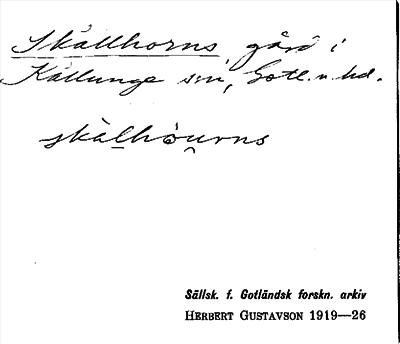 Skällhorns, gård i
Källunge sn, Gotl. n. hd.
skälhöurns
Sällsk. f. Gotländsk forskn. arkiv
HERBERT GUSTAVSON 1919—26